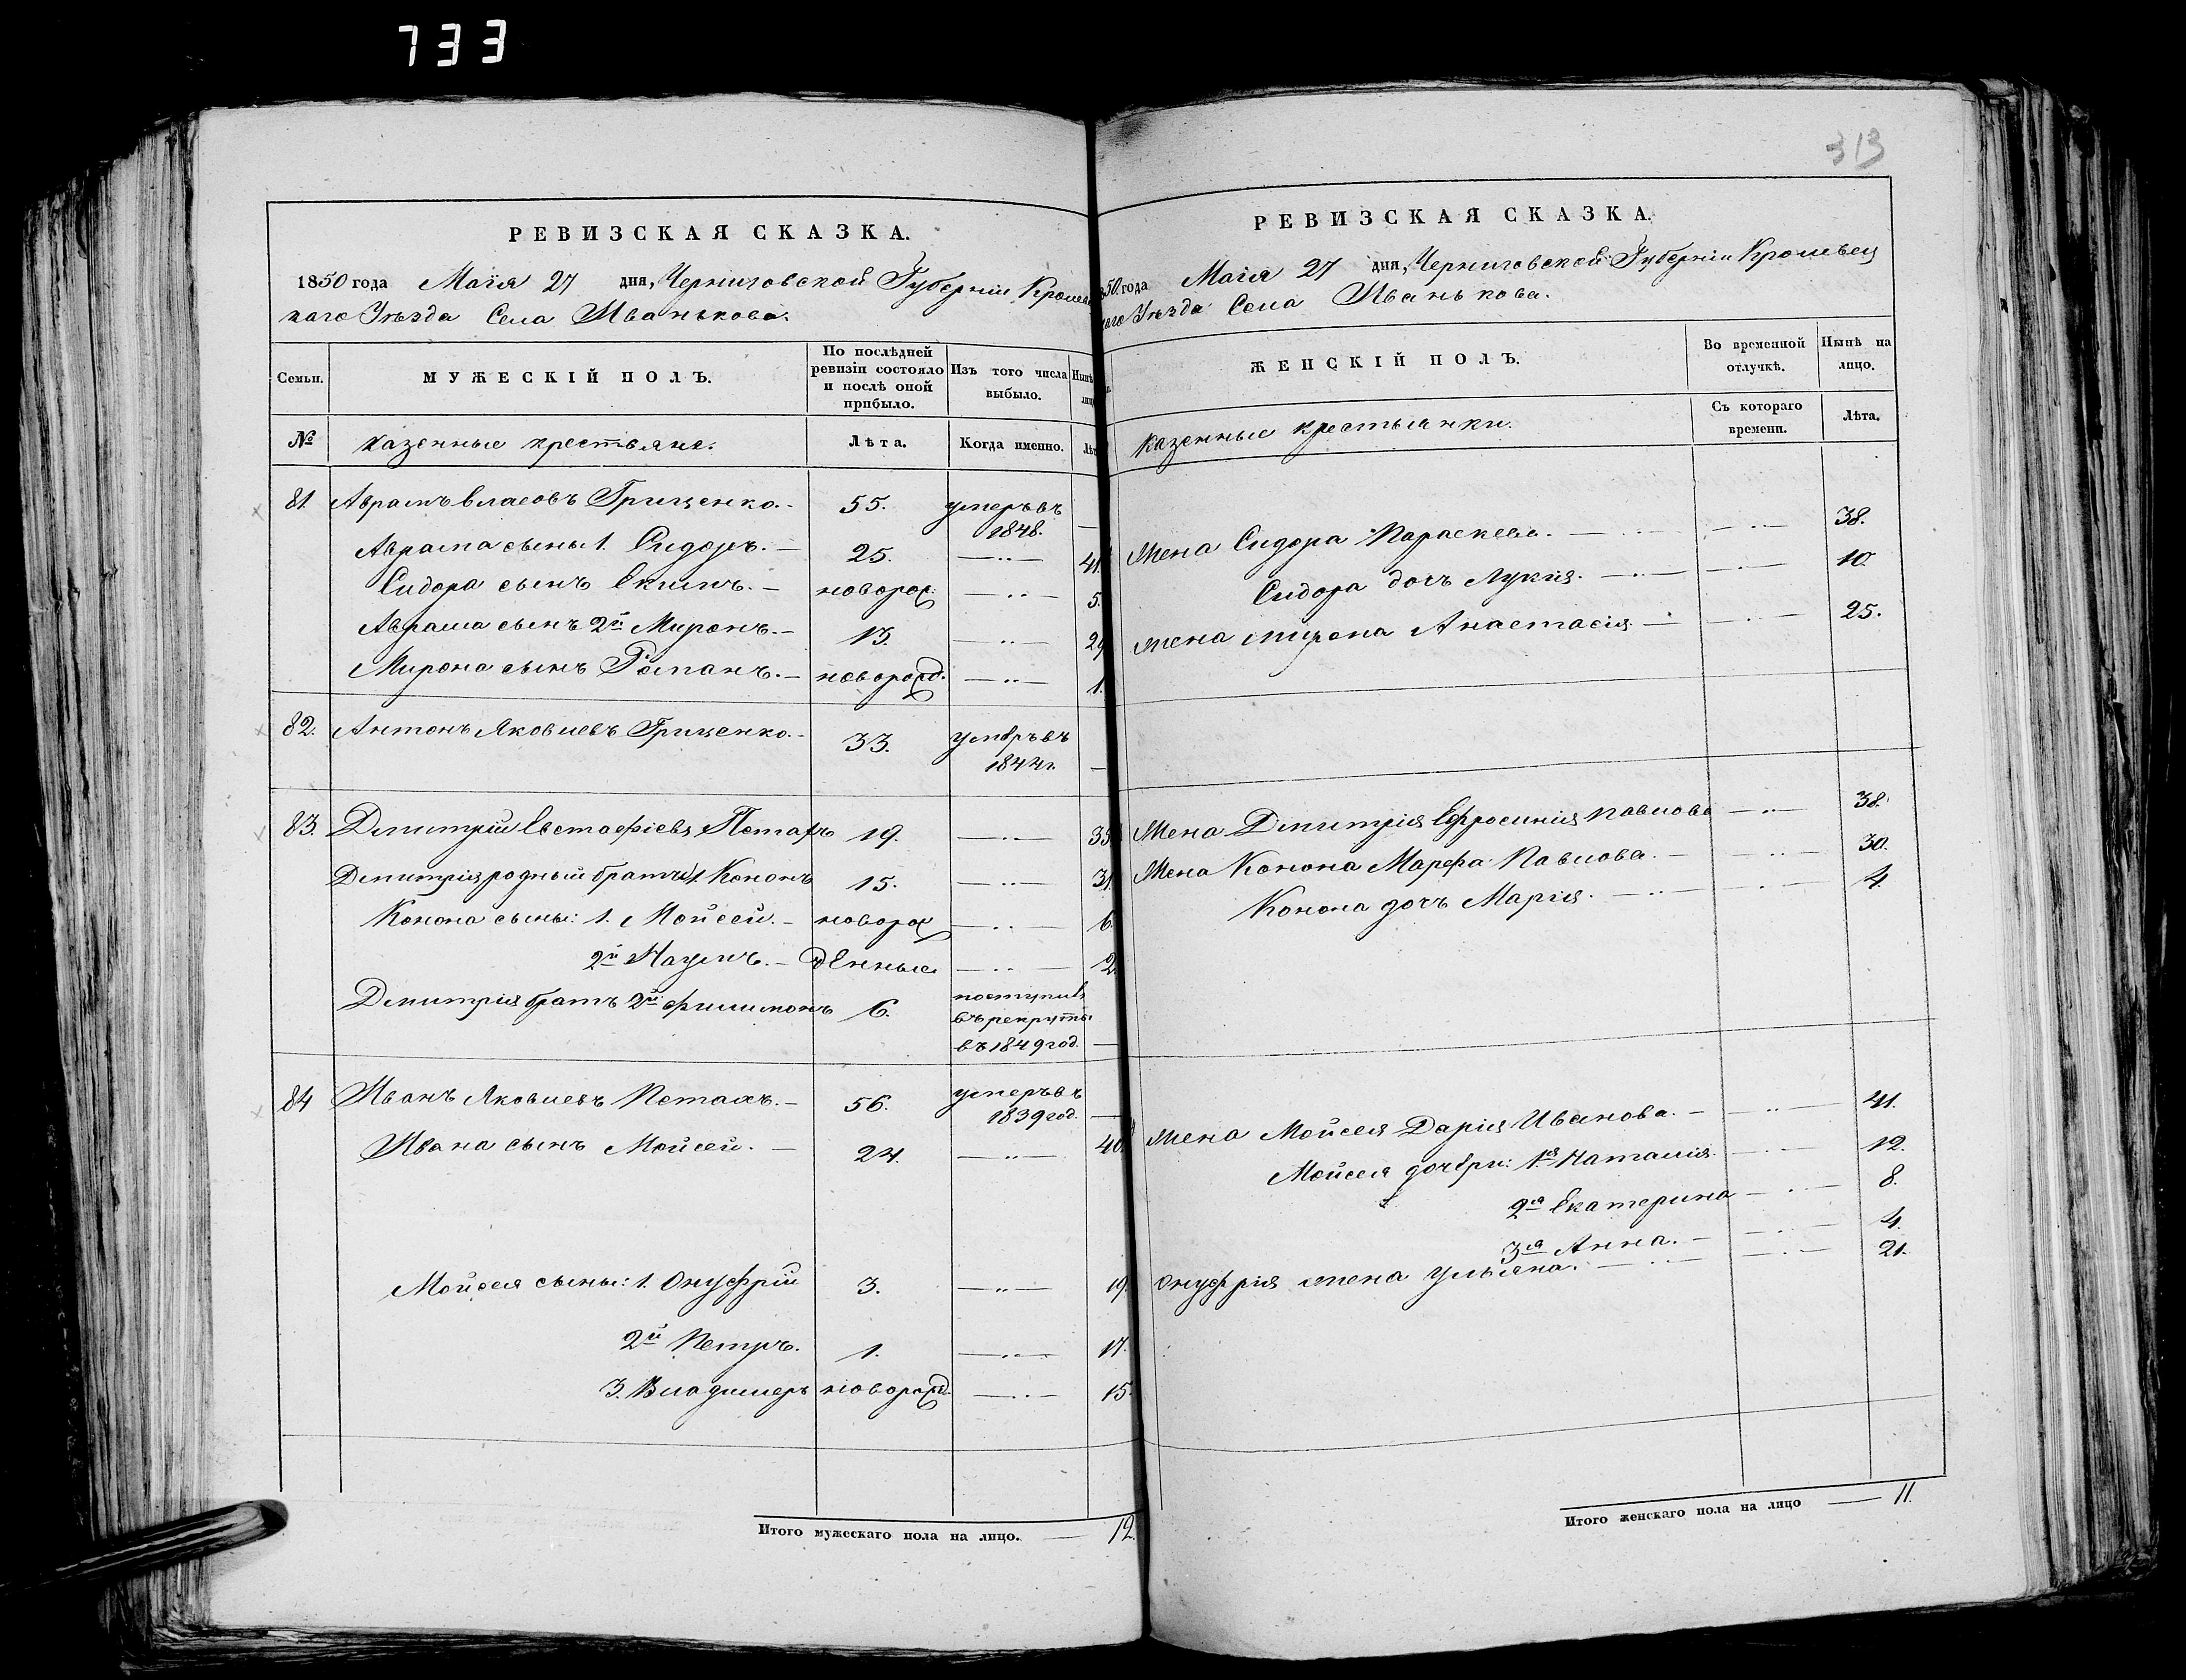 733
313
РЕВИЗСКАЯ СКАЗКА.
1850 года Маія 27 дня, Черниговской Губерніи Кролевец
каго Уѣзда Села Иванькова.
Семьи. МУЖЕСКІЙ ПОЛЪ. По послѣдней ревизіи состояло и послѣ оной прибыло. Изъ того числа выбыло. Нынѣ
№ Казенные крестьяне. Лѣта. Когда именно.
81. Аврамъ Власовъ Грищенко. 55. умеръ въ 1848. —
Аврама сыны 1. Сидоръ. — 25. —"— 41.
Сидора сынъ Екимъ. — новорож. —"— 5.
Аврама сынъ 2й Миронъ. — 13. —"— 29
Мирона сынъ Романъ. — новорожд. —"— 1.
82. Антонъ Яковлевъ Грищенко. 33. умеръ въ 1844г. —
83. Дмитрій Евстафіевъ Петахъ 19. —"— 35
Дмитрія родный братъ 1. Кононъ 15. —"— 31.
Конона сыны: 1. Мойсей. — новорож —"— 6.
2й Наумъ. — денные —"— 2.
Дмитрія братъ 2й Филимонъ 6. поступилъ въ рекруты въ 1849 год. —
84 Иванъ Яковлевъ Петахъ. — 56. умеръ въ 1839 год. —
Ивана сынъ Мойсей. — 24. —"— 40.
Мойсея сыны: 1. Онуфрій 3. —"— 19.
2й Петръ. 1. —"— 17.
3. Владимеръ новорожд. —"— 15.
Итого мужескаго пола на лицо. — 12.
РЕВИЗСКАЯ СКАЗКА.
850 года Маія 27 дня, Черниговской Губерніи Кролевец
каго Уѣзда Села Иванькова.
ЖЕНСКІЙ ПОЛЪ. Во временной отлучкѣ. Нынѣ на лицо.
Казенные крестьянки. Съ котораго времени. Лѣта.
Жена Сидора Параскева. —"— —"— 38.
Сидора дочь Лукія. —"— —"— 10.
Жена Мирона Анастасія — —"— 25.
Жена Дмитрія Ефросинія Павлова —"— 38.
Жена Конона Марфа Павлова. — —"— 30.
Конона дочь Марія. —"— —"— 4.
Жена Мойсея Дарія Иванова. — —"— 41.
Мойсея дочери: 1я Наталія. —"— 12.
2я Екатерина —"— 8.
3я Анна. — —"— 4.
Онуфрія жена Ульяна. —"— —"— 21.
Итого женскаго пола на лицо — 11.